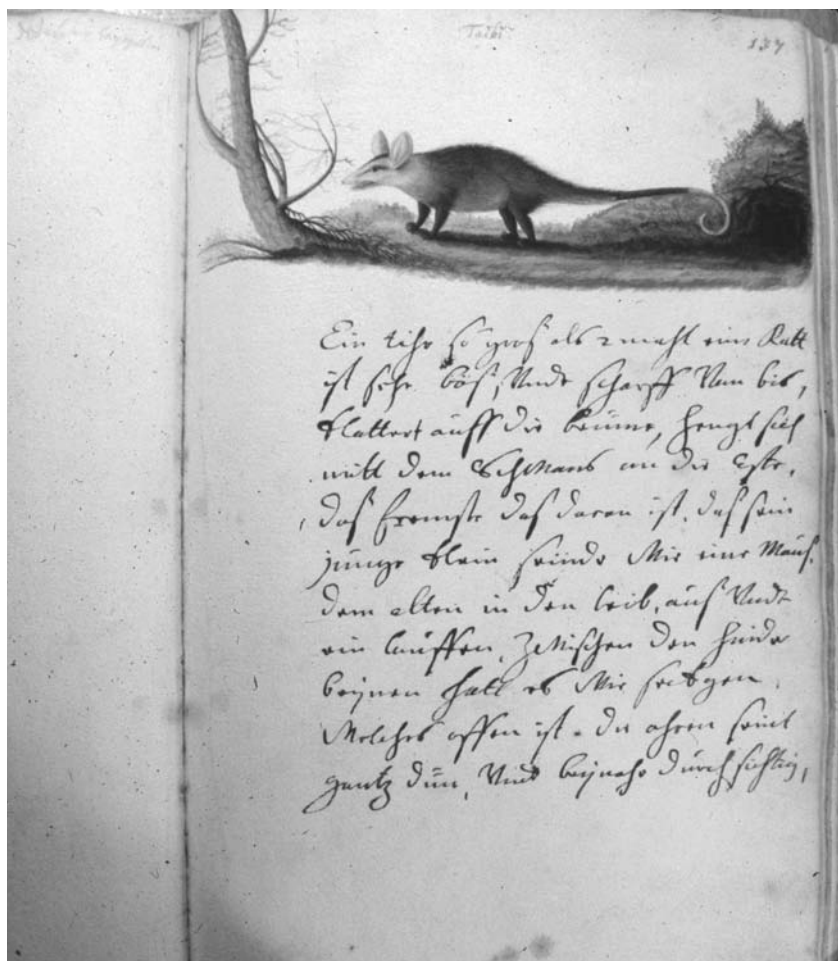 Taibi
137
Ein tihr so gros als 2 mahl eine Ratt
ist sehr böß, Vndt scharff Van bis,
klattert auff die beüme, hengt sich
mitt dem Schwans an die Este,
das fremste das daran ist, das sein
junge klein seindt wie eine Maus,
dem alten in den leib, aus Vndt
ein lauffen, Zwischen den hinder
beijnen hatt es wie seckgen
welches offen ist, die ohren seint
gantz dün, Vnd beijnahe durchsichtig,